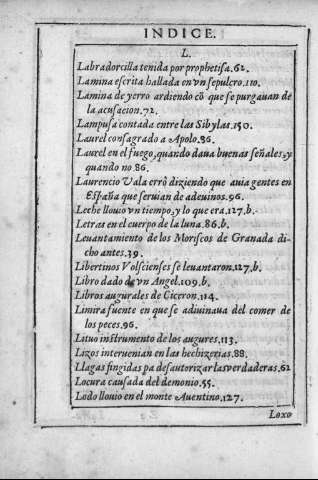 INDICE.
L.
Labradorcilla tenida por prophetisa.62.
Lamina escrita hallada en vn sepulcro.110.
Lamina de yerro ardiendo cō que se purgauan de
la acusacion.72.
Lampusa contada entre las Sibylas.150.
Laurel consagrado a Apolo.86.
Laurel en el fuego, quando daua buenas señales, y
quando no 86.
Laurencio Vala errò diziendo que auia gentes en
España que seruian de adeuinos.96.
Leche llouio vn tiempo, y lo que era.127.b.
Letras en el cuerpo de la luna.86.b.
Leuantamiento de los Moriscos de Granada di-
cho antes.39.
Libertinos Volscienses se leuantaron.127.b.
Libro dado de vn Angel.109.b.
Libros augurales de Ciceron.114.
Limira fuente en que se adiuinaua del comer de
los peces.96.
Lituo instrumento de los augures.113.
Lizos interuenian en las hechizerias.88.
Llagas fingidas pa desautorizar las verdaderas.62
Locura causada del demonio.55.
Lodo llouio en el monte Auentino.127.
Loxo